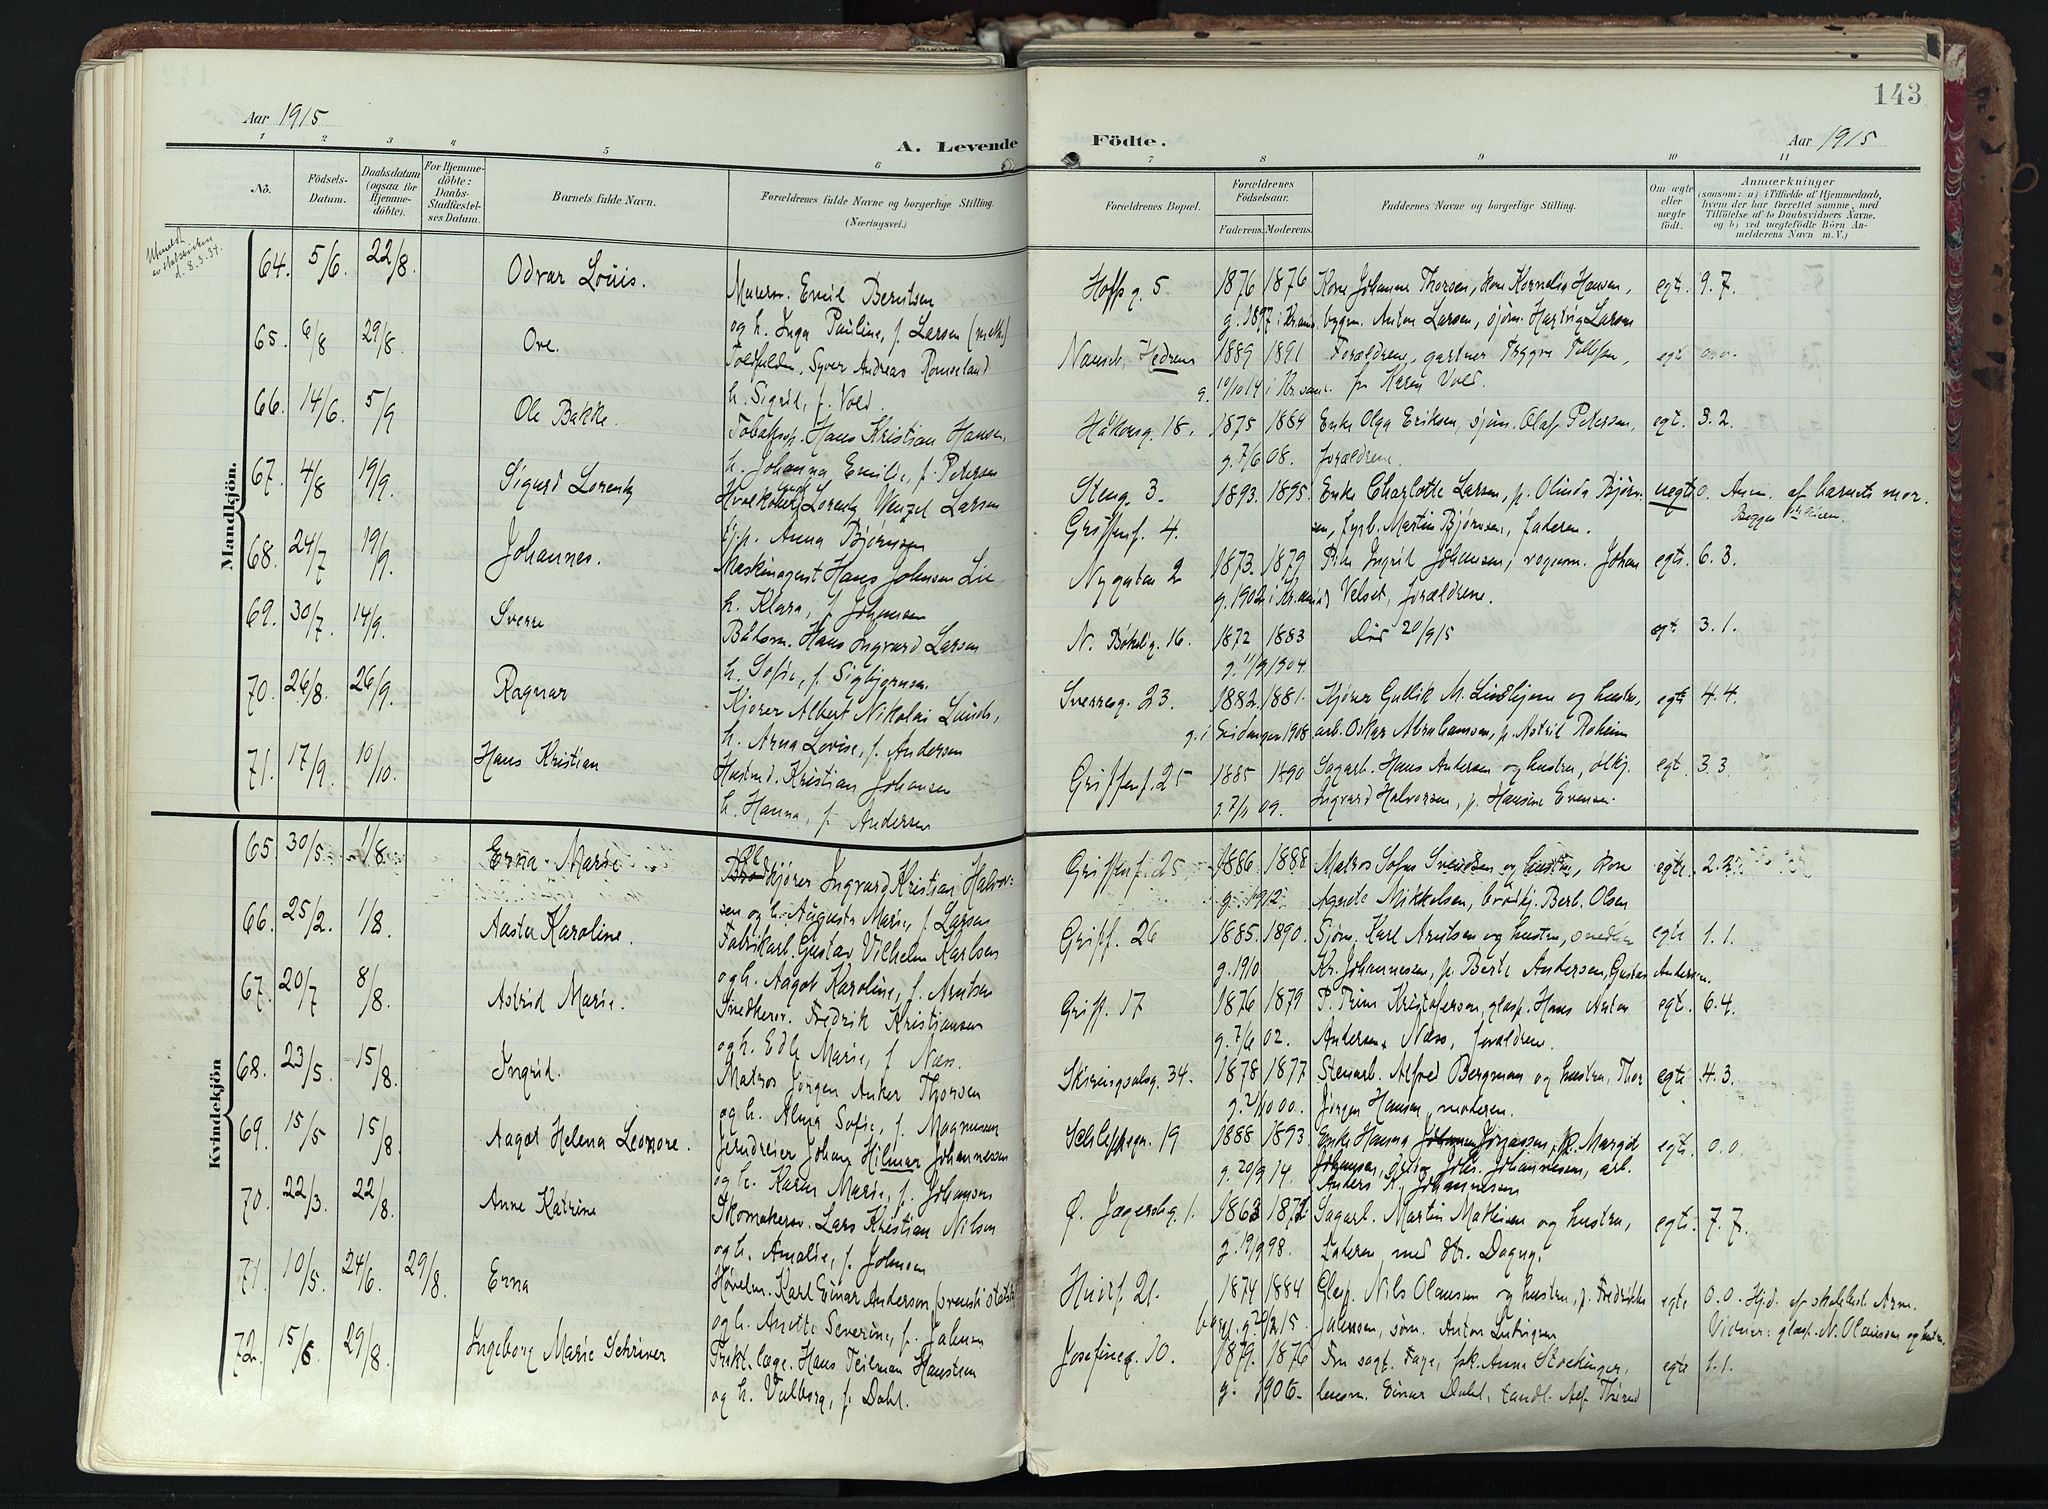 143
Aar 1915
A. Levende
Födte.
Aar 1915
1 2 3 4 5 6 7 8 9 10 11
No.
Födsels-
Datum.
Daabsdatum
(ogsaa for
Hjemme-
döbte).
For Hjemme-
döbte:
Daabs-
Stadfæstel-
ses Datum.
Barnets fulde Navn.
Forældrenes fulde Navne og borgerlige Stilling.
(Næringsvei.)
Forældrenes Bopæl.
Forældrenes
Födselsaar.
Faderens. Moderens.
Faddernes Navne og borgerlige Stilling.
Om ægte
eller
uægte
født.
Anmærkninger
(saasom: a) i Tilfælde af Hjemmedaab,
hvem der har forrettet samme, med
Tilföielse af to Daabsvidners Navne,
og b) ved uægtefödte Börn An-
melderens Navn m. V.)
Mandkjön.
8.3.34.
64. 5/6. 22/8. Odvar Louis.
Murersv. Emil Berntsen
og h. Inga Pauline, f. Larsen
Hoffsg. 5. 1876 1876 Kone Johanne Thorsen, kone Kornelia Hansen, egt. 9.7.
g. 1897 bygm. Anton Larsen, sjøm. Hartvig Larsen
65. 6/8 29/8. Ove.
Syver Andreas Romseland
h. Sigrid, f. Vold.
1889 1891 Forældrene, gartner Trygve Tellefsen, egt 0.0.
g. 10/10 14 i Kr.sand. fr. Karen Vold.
66. 14/6. 5/9 Ole Bakke.
Hans Kristian Hansen,
h. Johanna Emilie, f. Petersen
Håkonsg. 18. 1875 1884 Enke Olga Eriksen, sjøm. Olaf Petersen, egt. 3.2.
g. 7/6 08. forældrene.
67. 4/8 19/9. Sigurd Lorentz
Lorentz Wenzel Larsen
Anna Bjørnsen
Steng. 3. 1893. 1895. Enke Charlotte Larsen, p. Olinda Bjørn- uegte 0. Anm. af barnets mor.
Griffenf. 4. sen, fyrb. Martin Bjørnsen, faderen. Begges
68. 24/7 19/9. Johannes.
Maskinagent Hans Johnsen Lie
h. Klara, f. Johansen
Nygaten 2 1873. 1879 Pike Ingrid Johansen, vognm. Johan egte. 6.3.
g. 1902 i Velset, forældrene.
69. 30/7. 14/9. Sverre
Båtsm. Hans Ingvard Larsen
h. Sofie, f. Sigbjørnsen.
N. Bøkelig. 16. 1872 1883 Død 20/9 15 egt. 3.1.
g. 11/9 1904.
70. 26/8. 26/9. Ragnar
Kjører Albert Nikolai Lund,
h. Anna Lovise, f. Andersen
Sverresg. 23. 1882. 1881. Kjører Gullik M. Lindhjem og hustru, egte 4.4.
g. i Eidanger 1908 arb. Oskar Abrahamsen, p. Astrid
71. 17/9. 10/10. Hans Kristian
Kristian Johansen
h. Hanna, f. Andersen
Griffenf. 25 1885 1890 Sagarb. Hans Andersen og hustru, ølkj. egt. 3.3.
Ingvard Halvorsen, p. Hansine Evensen.
Kvindekjön
65. 30/5 1/8. Erna Marie
kjører Ingvard Kristian Halvor-
sen og h. Augusta Marie, f. Larsen
Griffenf. 25 1886 1888 Matros Sofus Svendsen og hustru, kone egte. 2.2.
g. 1912. Agnete Mikkelsen, brødkj. Berb. Olsen
66. 25/2. 1/8. Aasta Karoline.
Fabrikarb. Gustav Vilhelm Karlsen
og h. Aagot Karoline, f. Arntsen
Griff. 26 1885. 1890. Sjøm. Karl Arntsen og hustru, snedker egte 1.1.
g. 1910 Kr. Johannesen, p. Berte Andersen, Gustav Andersen.
67. 20/7 8/8. Astrid Marie.
Snedkersv. Fredrik Kristiansen
og h. Edle Marie, f. Næss.
Griff. 17 1876 1879 P. Trine Kristofersen, glasp. Hans Anton egt. 6.4.
g. 7/6 02. Andersen Næss, forældrene.
68. 23/5. 15/8. Ingrid.
Matros Jørgen Anker Thorsen
og h. Alma Sofie, f. Magnussen
Skiringsalsg. 34. 1878 1877 Stenarb. Alfred Bergman og hustru, Thor egte. 4.3.
g. 21/10 00. Jørgen Hansen, moderen.
69. 15/5 15/8. Aagot Helena Leonore.
Jerndreier Johan Hilmar Johannessen
og h. Karen Marie, f. Johansen
Schleppegr. 19 1888 1893 Enke Hanna Jørgensen, p. Margit egte. 0.0.
g. 20/9 14. Johansen, Johs. Johannesen, arb.
Anders K. Johannesen
70. 22/3. 22/8. Anne Katrine
Skomakersv. Lars Kristian Nilsen
og h. Amalie, f. Johnsen
Ø. Jegersbg. 1. 1863 1872 Sagarb. Martin Mathisen og hustru, egte. 7.7.
g. 19/9 98. faderen med dtr. Dagny.
71. 10/5. 24/6. 29/8. Erna
Høvelm. Karl Einar Andersen (svensk statsb.)
og h. Anette Severine, f. Jahnsen
Hvitf. 21. 1874 1884 Glasp. Nils Olaussen og hustru, p. Fredrikke egte 0.0. Hjd. af Arm.
15. Jahnsen, søm. Anton Vidner: glasp. N. Olaussen og hustru.
72. 15/6 29/8. Ingeborg Marie Schriver
Prakt. læge Hans Teilman Haustein
og h. Valborg, f. Dahl.
Josefineg. 10. 1879. 1876 Fru sagf. Faye, frk. Anna Stockinger, egte 1.1.
g. 1906. Einar Dahl,